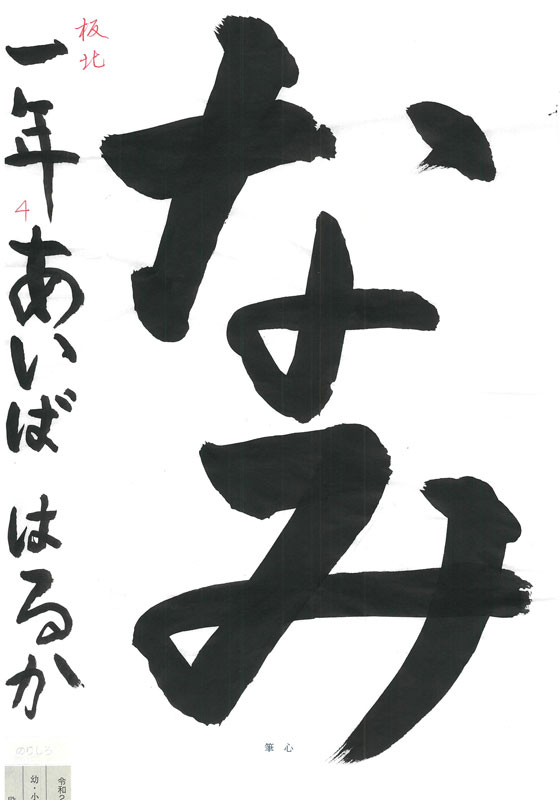 なみ
板北
一年
4
あいば はるか
筆心
のりしろ
令和2
幼・小